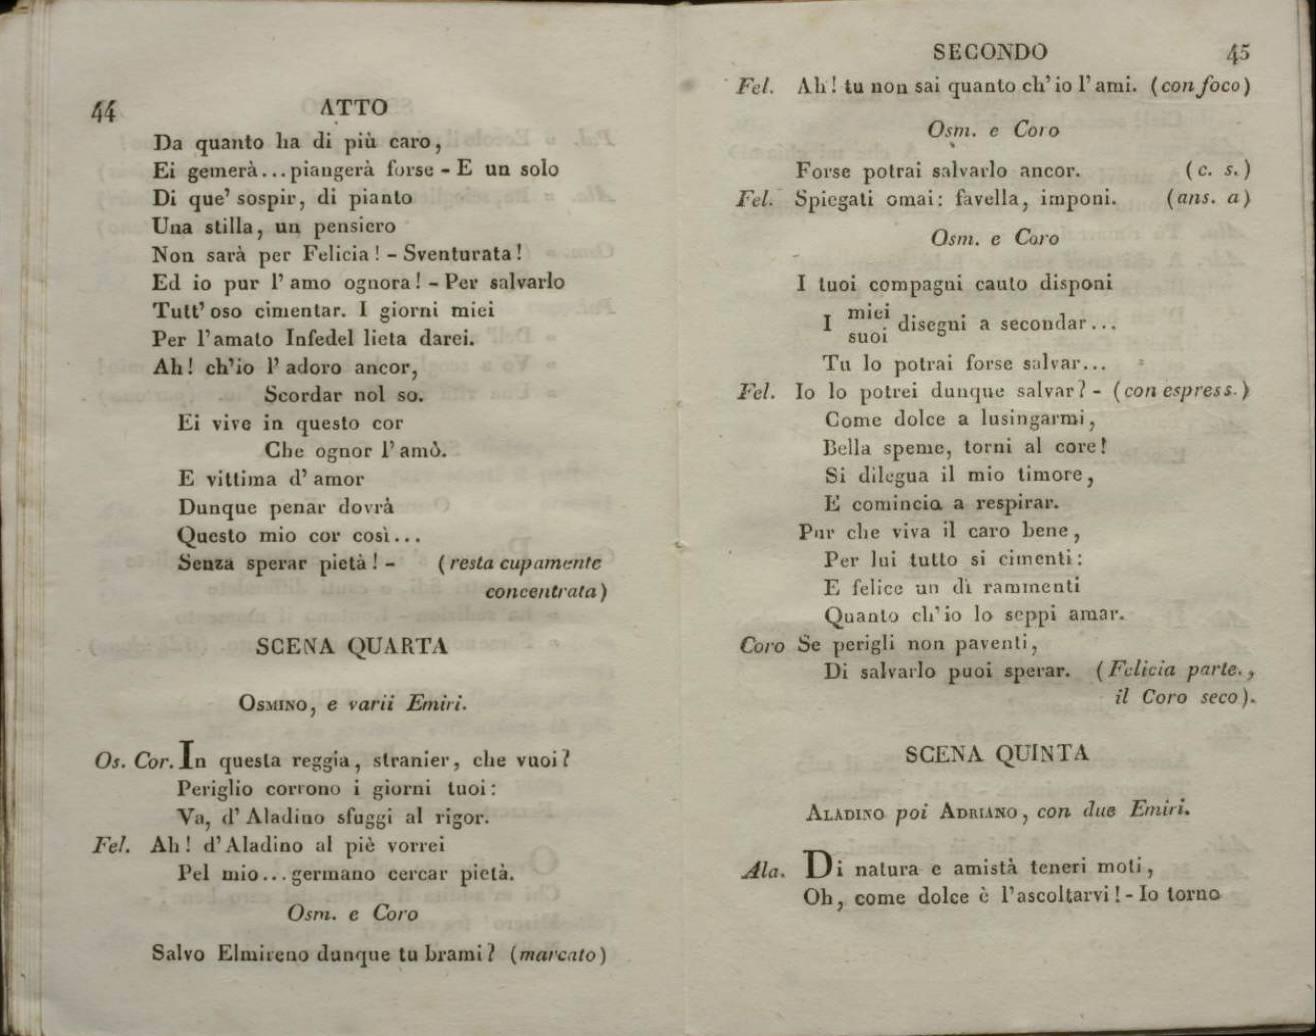 44 ATTO
Da quanto ha di più caro,
Ei gemerà...piangerà forse - E un solo
Di que' sospir, di pianto
Una stilla, un pensiero
Non sarà per Felicia! - Sventurata!
Ed io pur l'amo ognora! - Per salvarlo
Tutt'oso cimentar. I giorni miei
Per l'amato Infedel lieta darei.
Ah! ch'io l'adoro ancor,
Scordar nol so.
Ei vive in questo cor
Che ognor l'amò.
E vittima d'amor
Dunque penar dovrà
Questo mio cor così...
Senza sperar pietà! - (resta cupamente
concentrata)
SCENA QUARTA
OSMINO, e varii Emiri.
Os. Cor. In questa reggia, stranier, che vuoi?
Periglio corrono i giorni tuoi:
Va, d'Aladino sfuggi al rigor.
Fel. Ah! d'Aladino al piè vorrei
Pel mio...germano cercar pietà.
Osm. e Coro
Salvo Elmireno dunque tu brami? (marcato)
SECONDO 45
Fel. Ah! tu non sai quanto ch'io l'ami. (con foco)
Osm. e Coro
Forse potrai salvarlo ancor. (c. s.)
Fel. Spiegati omai: favella, imponi. (ans. a)
Osm. e Coro
I tuoi compagni cauto disponi
I miei disegni a secondar...
suoi
Tu lo potrai forse salvar...
Fel. Io lo potrei dunque salvar? - (con espress.)
Come dolce a lusingarmi,
Bella speme, torni al core!
Si dilegua il mio timore,
E comincio a respirar.
Pur che viva il caro bene,
Per lui tutto si cimenti:
E felice un dì rammenti
Quanto ch'io lo seppi amar.
Coro Se perigli non paventi,
Di salvarlo puoi sperar. (Felicia parte.,
il Coro seco).
SCENA QUINTA
ALADINO poi ADRIANO, con due Emiri.
Ala. Di natura e amistà teneri moti,
Oh, come dolce è l'ascoltarvi! - Io torno